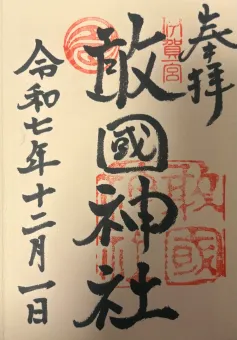 奉拝
伊賀一宮
敢國神社
敢國
令和七年十二月一日